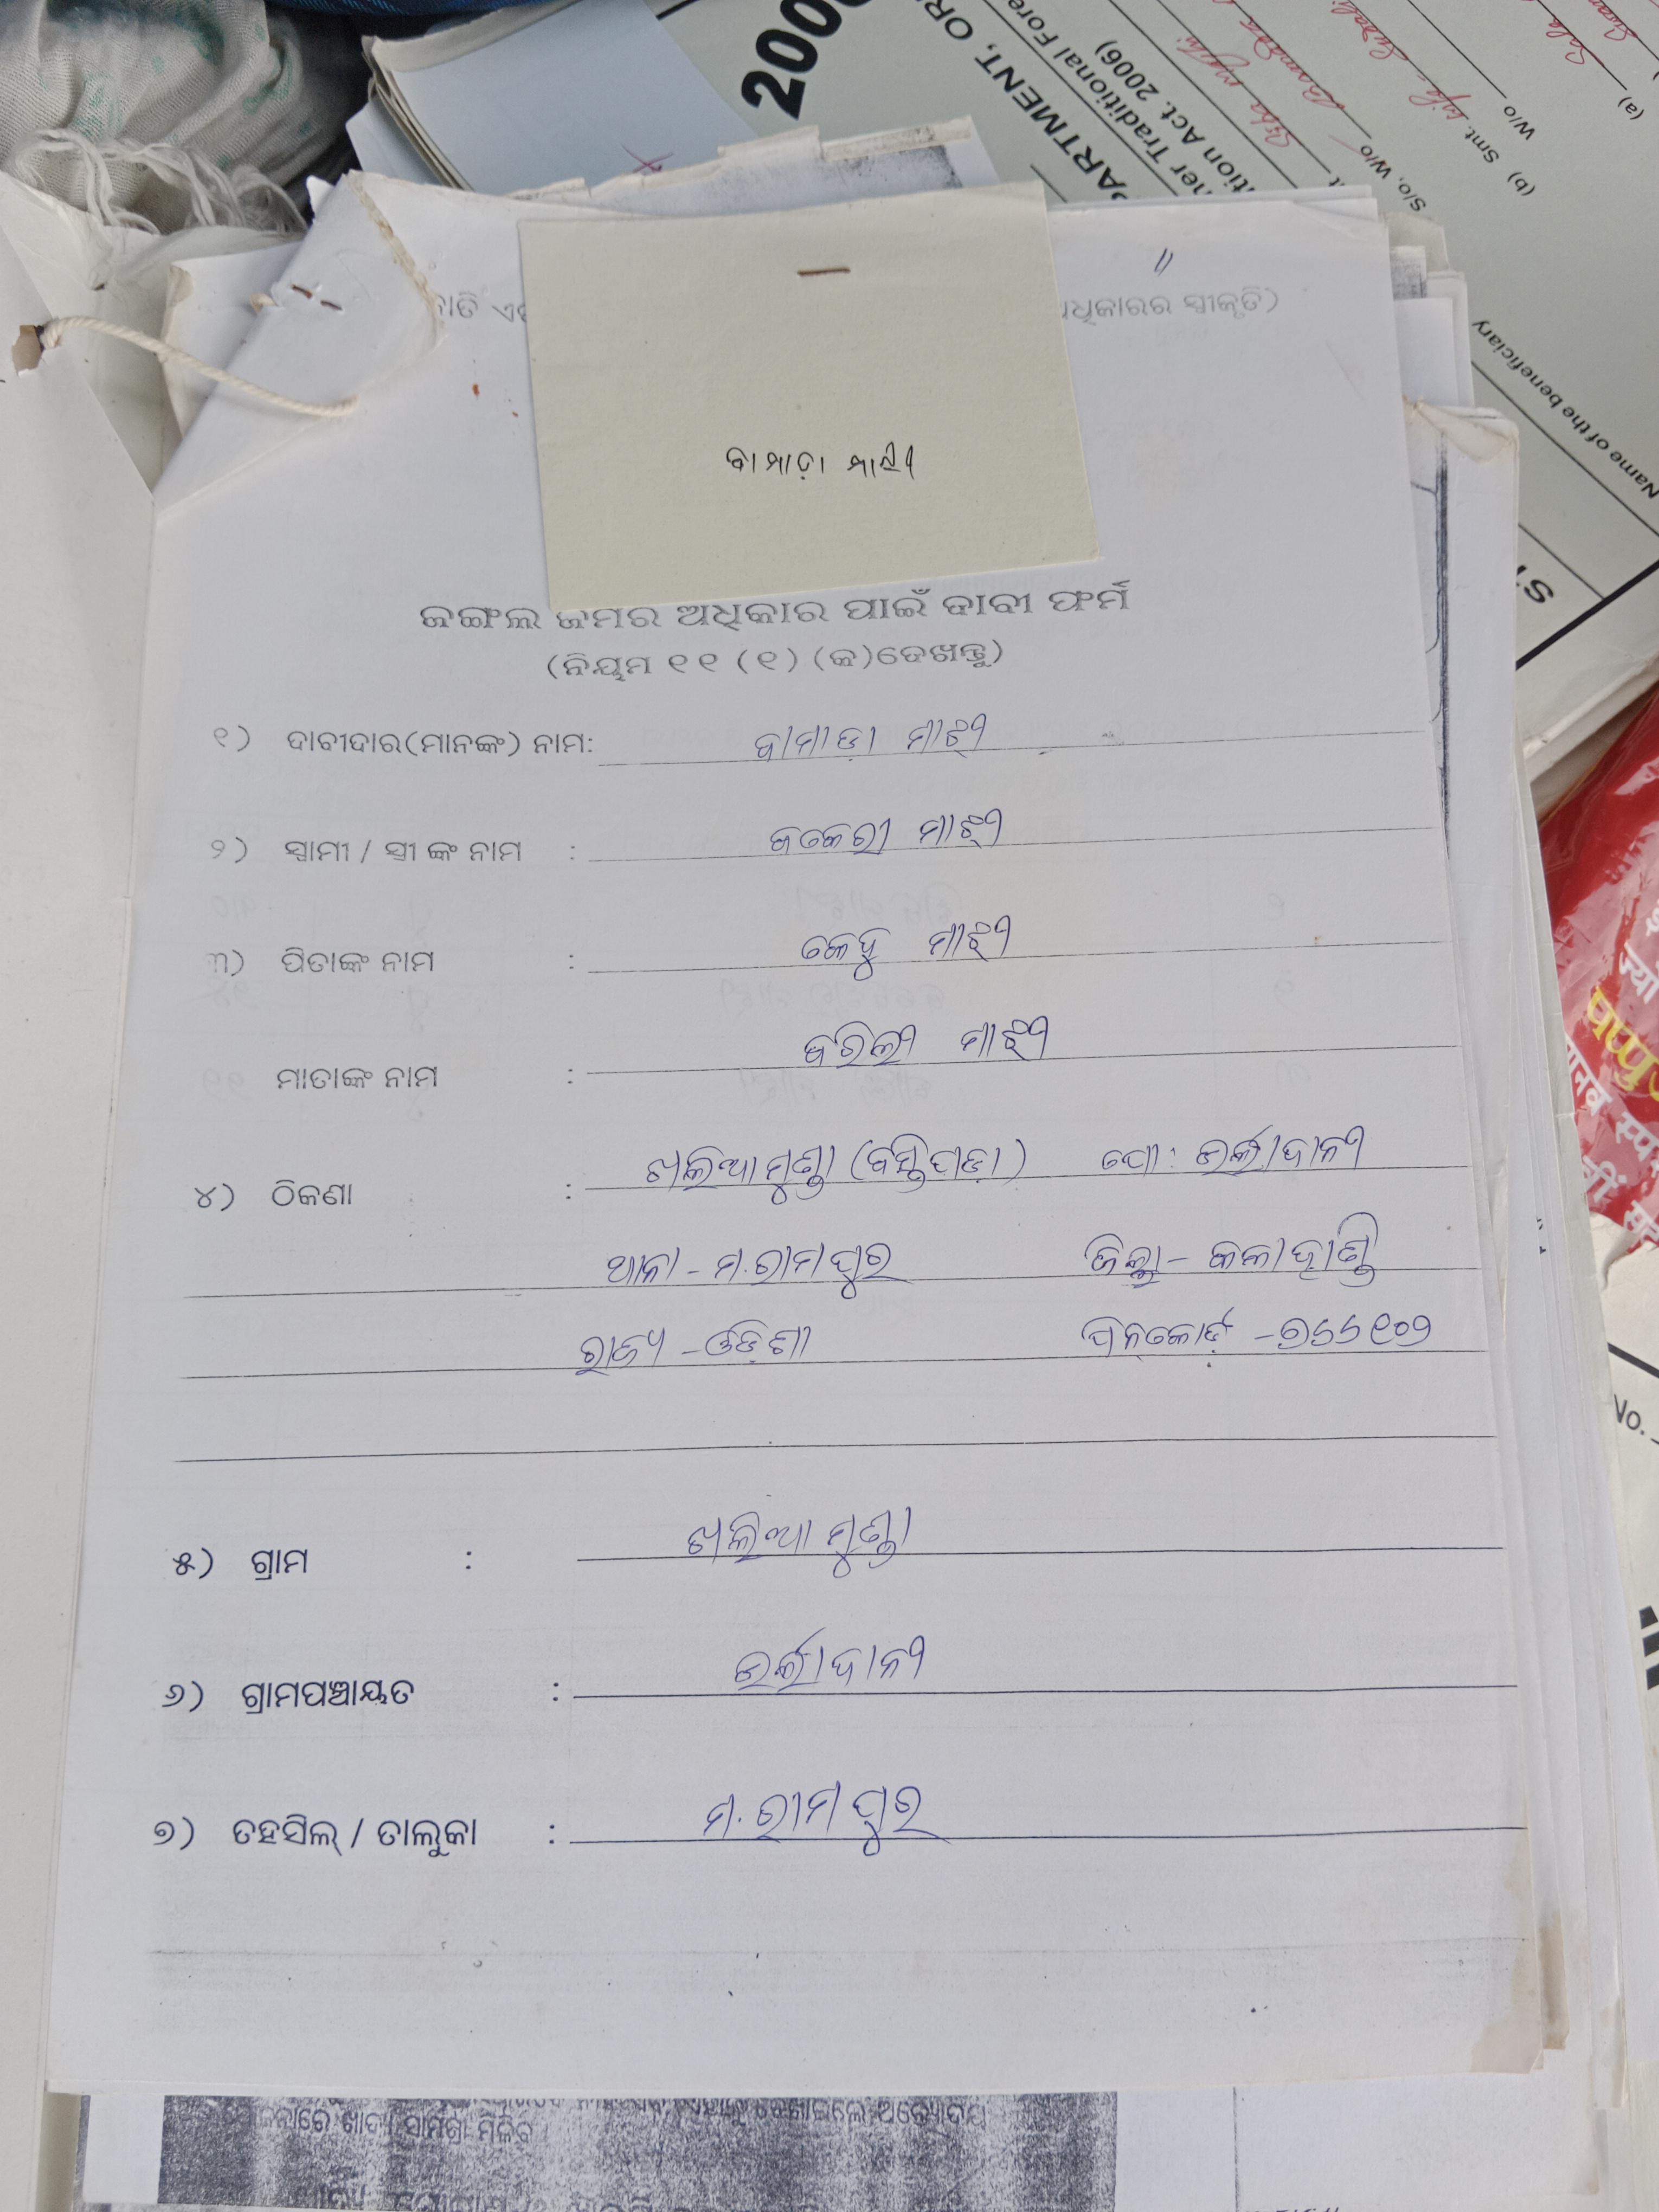 200
PARTMENT, OR
her Traditional Fore
ition Act. 2006)
S/o, W/o
(b) Smt.
W/o
(a)
Name of the beneficiary
No.
ଅଧିକାରର ସ୍ୱୀକୃତି)
ବାମାଡ଼ା ମାଝୀ
ଜଙ୍ଗଲ ଜମିର ଅଧିକାର ପାଇଁ ଦାବୀ ଫର୍ମ
(ନିୟମ ୧୧ (୧) (କ)ଦେଖନ୍ତୁ)
୧) ଦାବୀଦାର(ମାନଙ୍କ) ନାମ: ବାମାଡ଼ା ମାଝୀ
୨) ସ୍ୱାମୀ / ସ୍ତ୍ରୀ ଙ୍କ ନାମ : ମାଝୀ
୩) ପିତାଙ୍କ ନାମ : କେହୁ ମାଝୀ
ମାତାଙ୍କ ନାମ : ମାଝୀ
୪) ଠିକଣା : ଖଲିଆମୁଣ୍ଡା (ବସ୍ତିପଡ଼ା) ପୋ: ଉର୍ଲାଦାନୀ
ଥାନା - ମ.ରାମପୁର ଜିଲ୍ଲା - କଳାହାଣ୍ଡି
ରାଜ୍ୟ - ଓଡ଼ିଶା ପିନ୍‌କୋଡ଼ - ୭୬୬୧୦୨
୫) ଗ୍ରାମ : ଖଲିଆମୁଣ୍ଡା
୬) ଗ୍ରାମପଞ୍ଚାୟତ : ଉର୍ଲାଦାନୀ
୭) ତହସିଲ୍ / ତାଲୁକା : ମ.ରାମପୁର
ଖାଦ୍ୟ ସାମଗ୍ରୀ ମିଳିବ